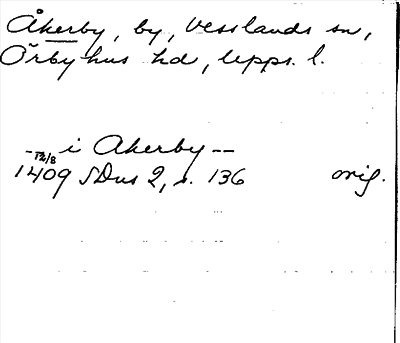 Åkerby, by, Vesslands sn,
Örbyhus hd, Upps. l.
- i Åkerby --
12/8
1409 SDns 2, s. 136 orig.